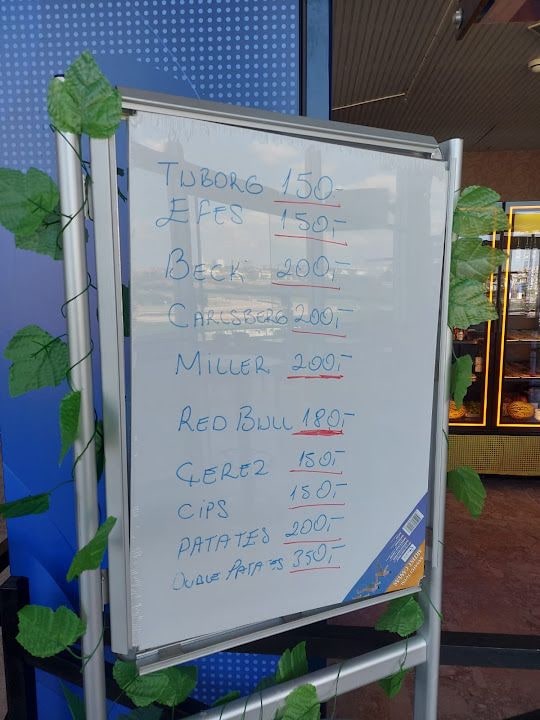 TUBORG 150.-
EFES 150,-
BECK 200,-
CARLSBERG 200,-
MILLER 200,-
RED BULL 180,-
ÇEREZ 150,-
CiPS 150,-
PATATES 200,-
DUBLE PATATES 350,-